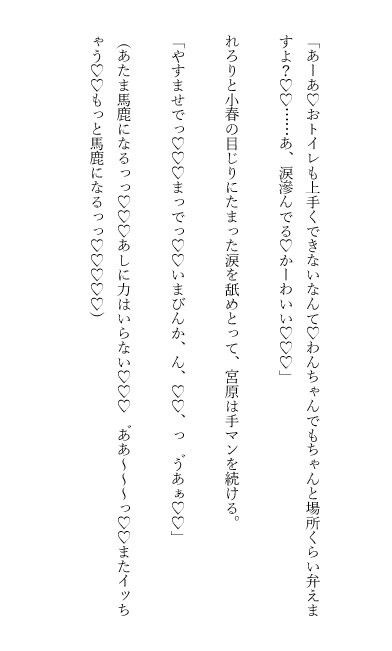 「あーあ♡おトイレも上手くできないなんて♡わんちゃんでもちゃんと場所くらい弁えま
すよ？♡♡……あ、涙滲んでる♡かーわいい♡♡♡」
れろりと小春の目じりにたまった涙を舐めとって、宮原は手マンを続ける。
「やすませでっ♡♡♡まっでっ♡♡いまびんか、ん、♡♡、っ゛うあぁ♡♡」
（あたま馬鹿になるっっ♡♡♡あしに力はいらない♡♡♡゛ああ～～～っ♡♡またイッち
ゃう♡♡もっと馬鹿になるっっ♡♡♡♡♡）